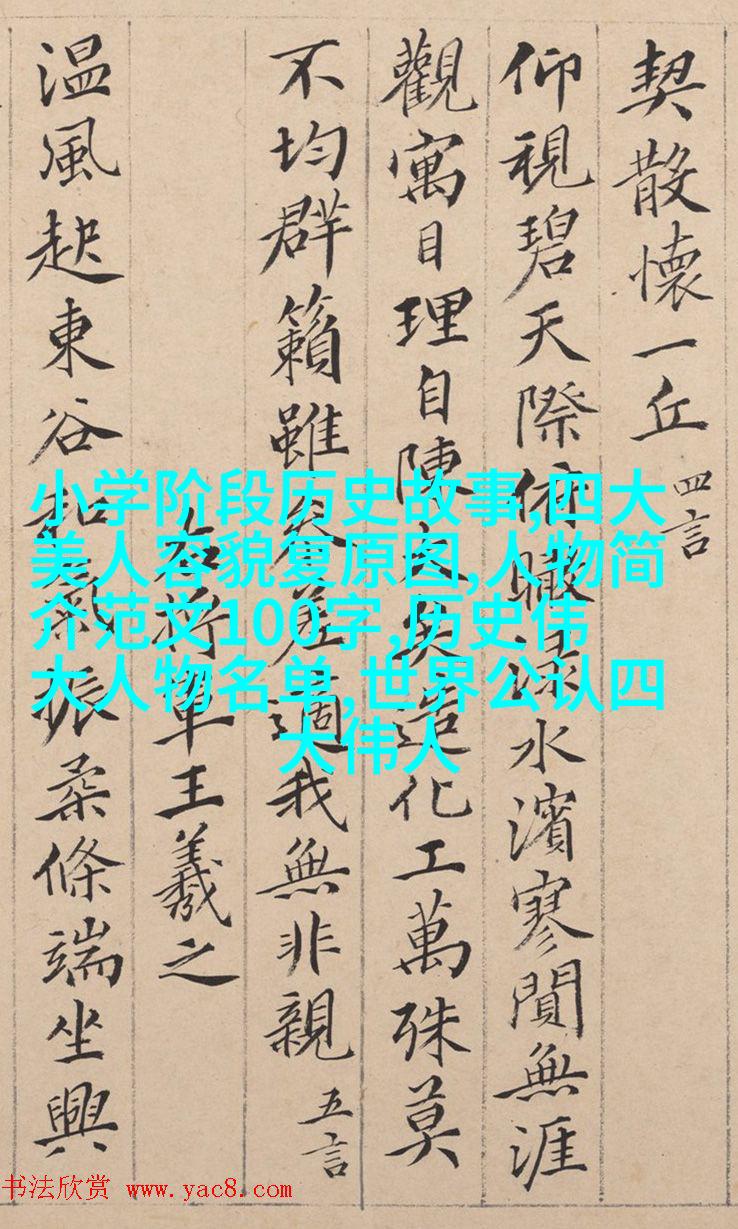 契散懷一丘 四言
仰視碧天際俯瞰渌水濱寥閴無涯
觀寓目理自陳大矣造化工萬殊莫
不均群籟雖参差適我無非親 五言
右將軍王羲之
温風起東谷和氣振柔條端坐興
小学阶段历史故事,四大
美人容貌复原图,人物简
介范文100字,历史伟
大人物名单,世界公认四
大伟人
书法欣赏 www.yac8.com